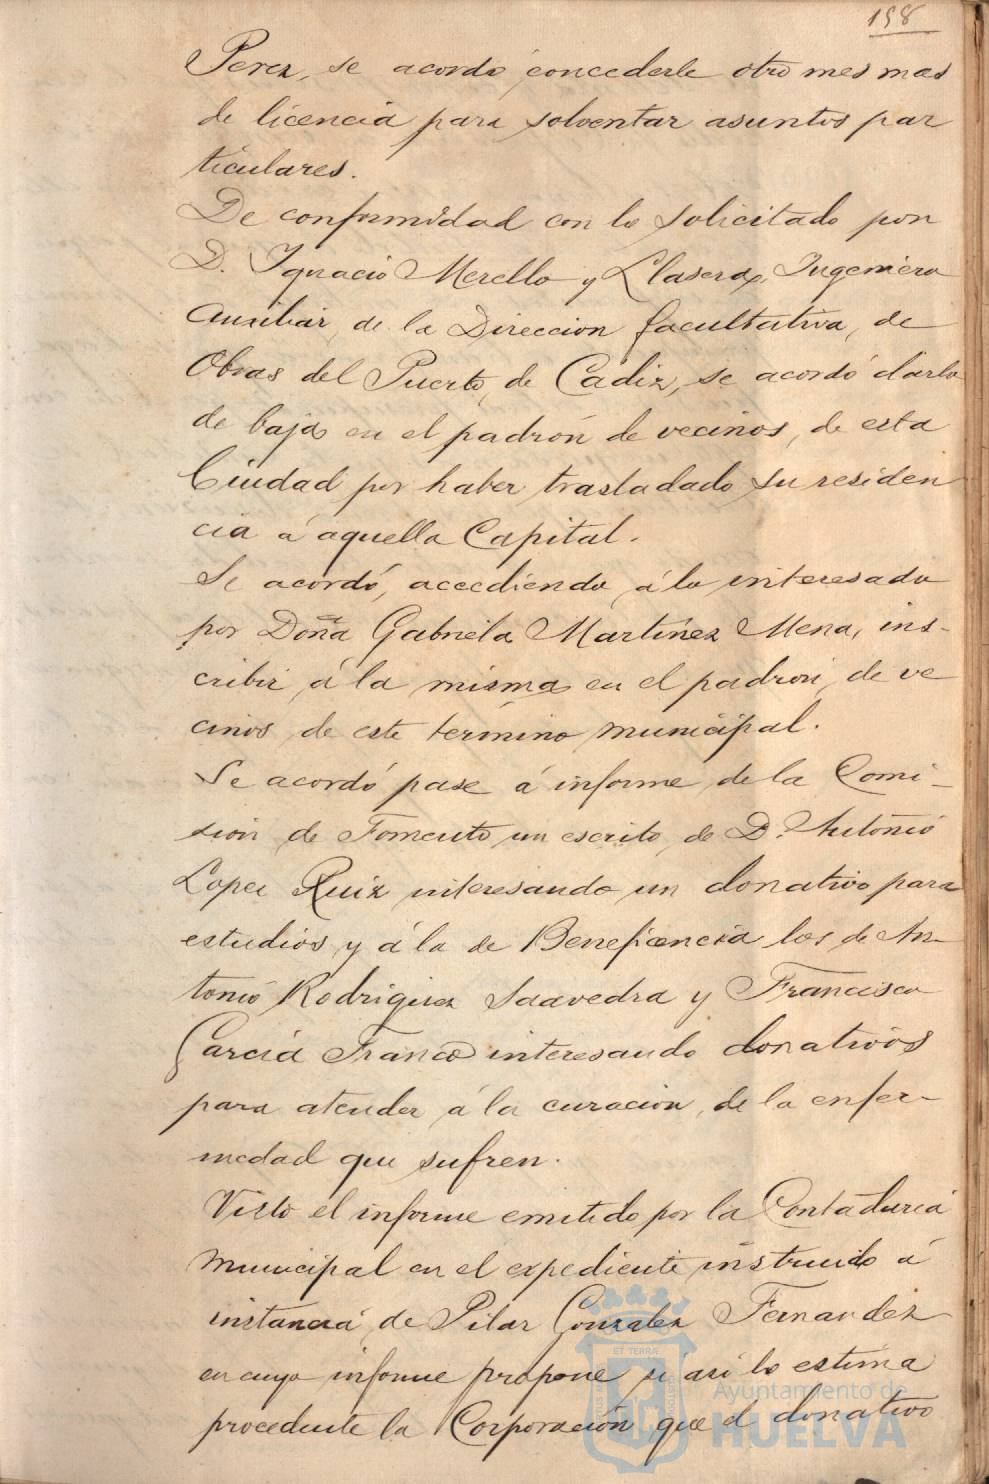 158
Perez, se acordó concederle otro mes mas
de licencia para solventar asuntos par
ticulares.
De conformidad con lo solicitado por
D. Ignacio Merello y Llasera, Ingeniero
Auxiliar, de la Direccion facultativa, de
Obras del Puerto, de Cadiz, se acordó darlo
de baja en el padrón de vecinos, de esta
Ciudad por haber trasladado su residen
cia á aquella Capital.
Se acordó, accediendo, á lo interesado
por Doña Gabriela Martinez Mena, ins-
cribir á la misma en el padron, de ve
cinos de este termino municipal.
Se acordó pase á informe de la Comi-
sion de Fomento un escrito, de D. Antonio
Lopez Ruiz interesando un donativo para
estudios y á la de Beneficencia los de An-
tonio Rodriguez Saavedra y Francisco
García Franco interesando donativos
para atender á la curacion, de la enfer-
medad que sufren.
Visto el informe emitido por la Contaduria
Municipal en el expediente instruido á
instancia de Pilar Gonzalez Fernandez
en cuyo informe propone si así lo estima
procedente la Corporación que el donativo
ET TERRA
Ayuntamiento de
HUELVA